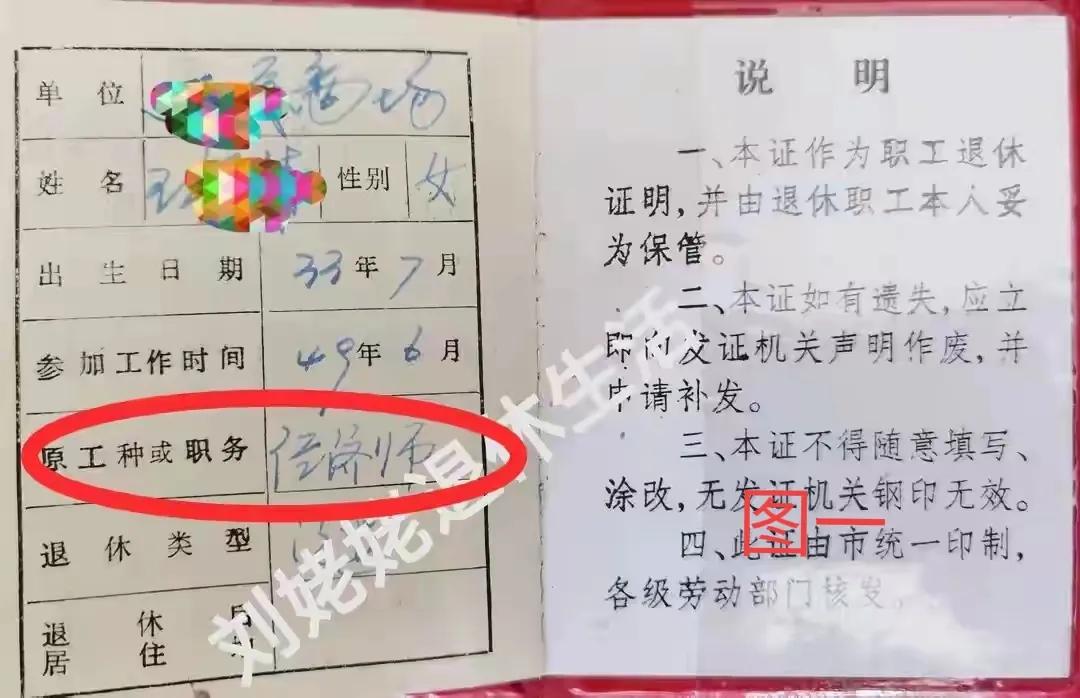 单位 商场
姓名 王 性别 女
出生日期 33年7月
参加工作时间 49年6月
原工种或职务 经济师
退休类型
退休后
居住
说明
一、本证作为职工退休
证明,并由退休职工本人妥
为保管。
二、本证如有遗失,应立
即向发证机关声明作废,并
申请补发。
三、本证不得随意填写、
涂改,无发证机关钢印无效。
四、此证由市统一印制,
各级劳动部门核发。
图一
刘姥姥退休生活